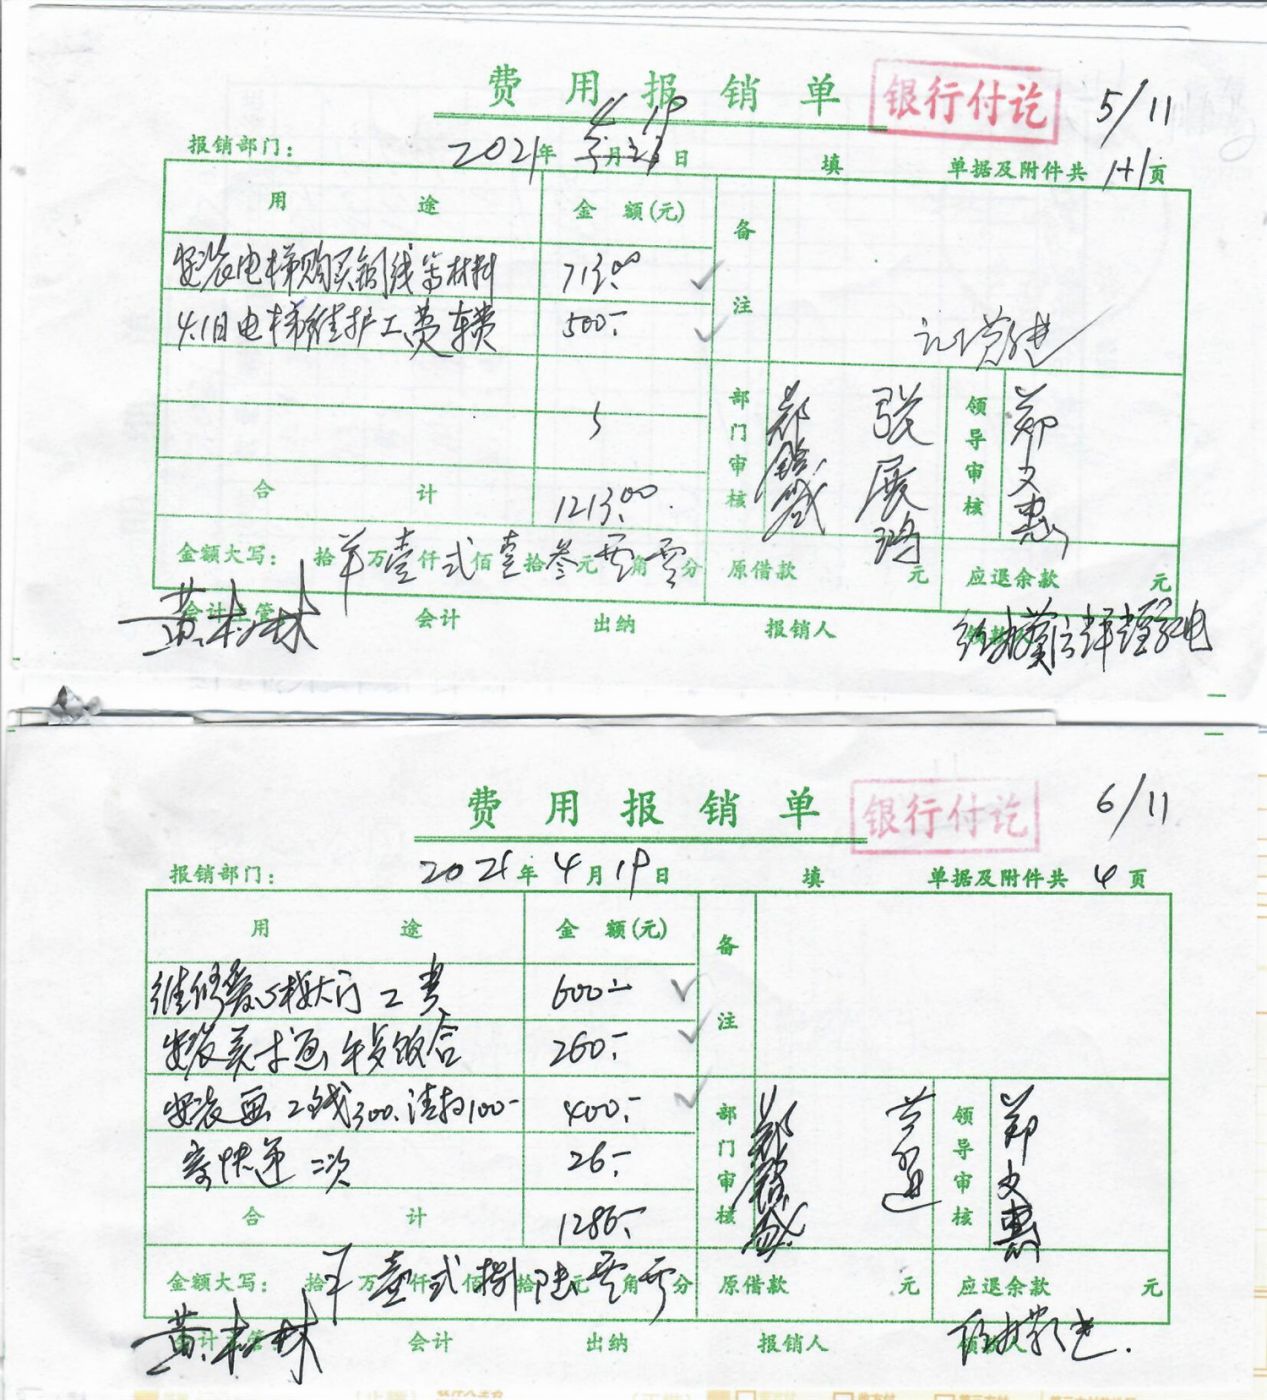 费用报销单 银行付讫 5/11
4 19
报销部门： 2021年 月 日 填 单据及附件共 1+1 页
用途 金额(元) 备注
安装电梯购买铜线等材料 713.00
4.1日电梯维护工费车费 500.-
部门审核 郑 张展 领导审核 郑文惠
合计 1213.00
金额大写： 拾 万壹仟弍佰壹拾叁元零角零分 原借款 元 应退余款 元
会计主管 会计 出纳 报销人
黄林林
费用报销单 银行付讫 6/11
报销部门： 2021年4月19日 填 单据及附件共 4 页
用途 金额(元) 备注
维修爱心楼大门工费 600.-
安装 260.-
安装画工钱300.清扫100- 400.-
寄快递二次 26.-
部门审核 郑 领导审核 郑文惠
合计 1286.-
金额大写： 拾 万壹仟弍佰捌拾陆元零角零分 原借款 元 应退余款 元
会计主管： 会计 出纳 报销人 领款人
黄林林